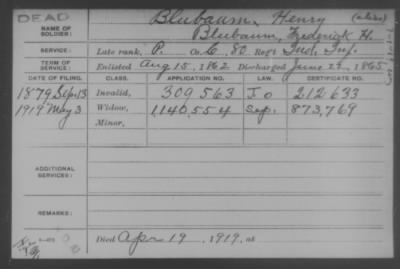 DEAD
Blubaum, Henry (alias)
NAME OF SOLDIER: Blubaum, Frederick H.
SERVICE: Late rank, P. Co. C, 80 Reg't Ind. Inf.
TERM OF SERVICE: Enlisted Aug 15, 1862 Discharged June 22, 1865
DATE OF FILING. CLASS. APPLICATION NO. LAW. CERTIFICATE NO.
1879 Sep 13 Invalid, 309,563 212 633
1919 May 3 Widow, 1,140,554 Sep. 873,769
Minor,
ADDITIONAL SERVICES:
REMARKS:
Died Apr 19, 1919, at